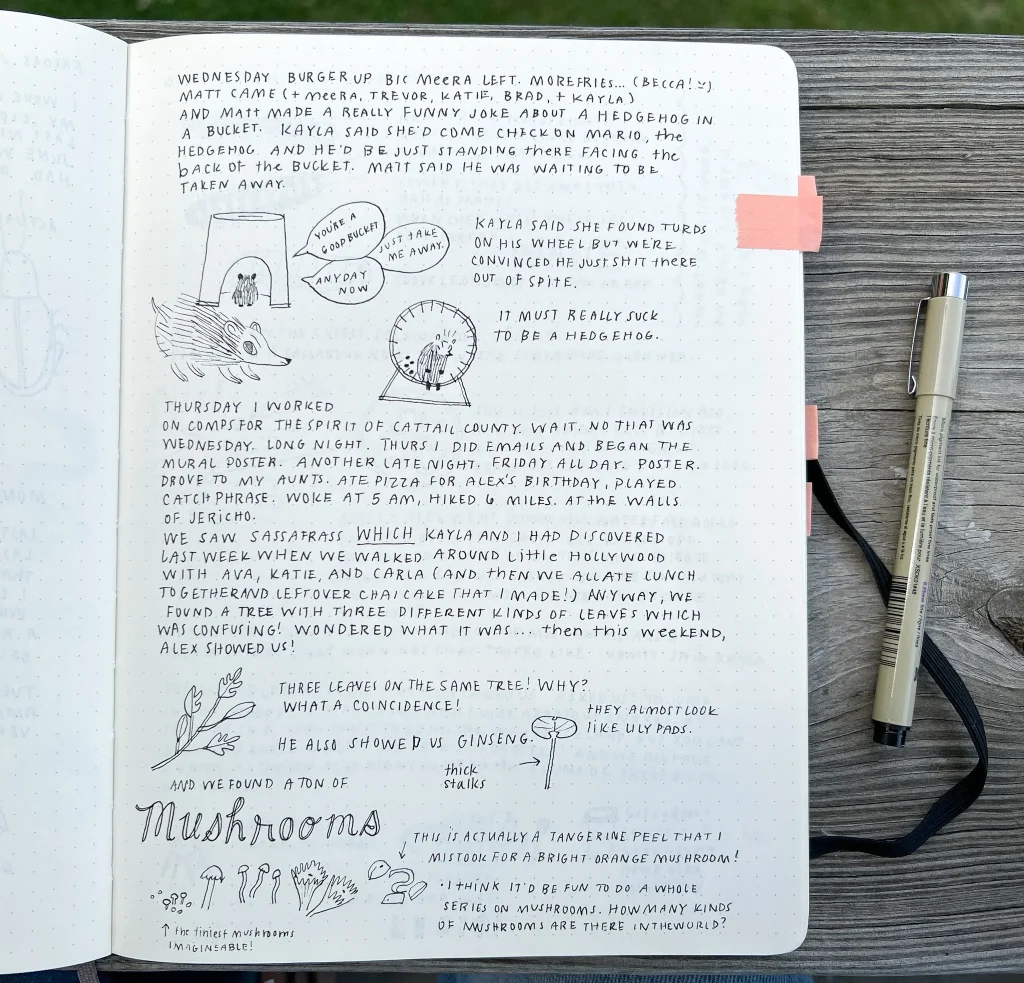 WEDNESDAY BURGER UP BIC MEERA LEFT. MORE FRIES... (BECCA!
MATT CAME (+ MEERA, TREVOR, KATIE, BRAD, + KAYLA)
AND MATT MADE A REALLY FUNNY JOKE ABOUT A HEDGEHOG IN
A BUCKET. KAYLA SAID SHE'D COME CHECK ON MARIO, the
HEDGEHOG AND HE'D BE JUST STANDING thERE FACING the
bACK OF the BUCKET. MATT SAID HE WAS WAITING TO BE
TAKEN AWAY.
YOU'RE A
GOOD BUCKET
JUST TAKE
ME AWAY.
ANYDAY
NOW
KAYLA SAID SHE FOUND TURDS
ON HIS WHEEL BUT WE'RE
CONVINCED HE JUST SHIT thERE
OUT OF SPITE.
IT MUST REALLY SUCK
TO BE A HEDGEHOG.
THURSDAY I WORKED
ON COMPS FOR THE SPIRIT OF CATTAIL COUNTY. WAIT. NO THAT WAS
WEDNESDAY. LONG NIGHT. THURS I DID EMAILS AND BEGAN THE
MURAL POSTER. ANOTHER LATE NIGHT. FRIDAY ALL DAY. POSTER.
DROVE TO MY AUNTS. ATE PIZZA FOR ALEX'S BIRTHDAY, PLAYED
CATCH PHRASE. WOKE AT 5 AM, HIKED 6 MILES. AT the WALLS
OF JERICHO.
WE SAW SASSAFRASS WHICH KAYLA AND I HAD DISCOVERED
LAST WEEK WHEN WE WALKED AROUND Little HOLLYWOOD
WITH AVA, KATIE, AND CARLA (AND thEN WE ALL ATE LUNCH
TOGETHER AND LEFTOVER CHAI CAKE THAT I MADE!) ANYWAY, WE
FOUND A TREE WITH THREE DIFFERENT KINDS OF LEAVES WHICH
WAS CONFUSING! WONDERED WHAT IT WAS... then this WEEKEND,
ALEX SHOWED US!
THREE LEAVES ON THE SAME TREE! WHY?
WHAT A COINCIDENCE!
THEY ALMOST LOOK
LIKE LILY PADS.
HE ALSO SHOWED US GINSENG.
thick
stalks
AND WE FOUND A TON OF
Mushrooms
THIS IS ACTUALLY A TANGERINE PEEL THAT I
MISTOOK FOR A BRIGHT ORANGE MUSHROOM!
• I THINK IT'D BE FUN TO DO A WHOLE
SERIES ON MUSHROOMS. HOW MANY KINDS
OF MUSHROOMS ARE THERE IN THE WORLD?
the tiniest mushrooms
IMAGINEABLE!